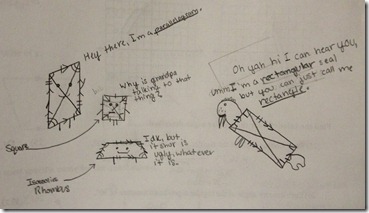 Hey there, I'm a parallelogram.
Why is grandpa
talking to that
thing?
Square
Idk, but
it shur is
ugly, whatever
it is.
Isosceles
Rhombus
Oh yah hi I can hear you,
I'm a rectangular seal
but you can just call me
rectangle.